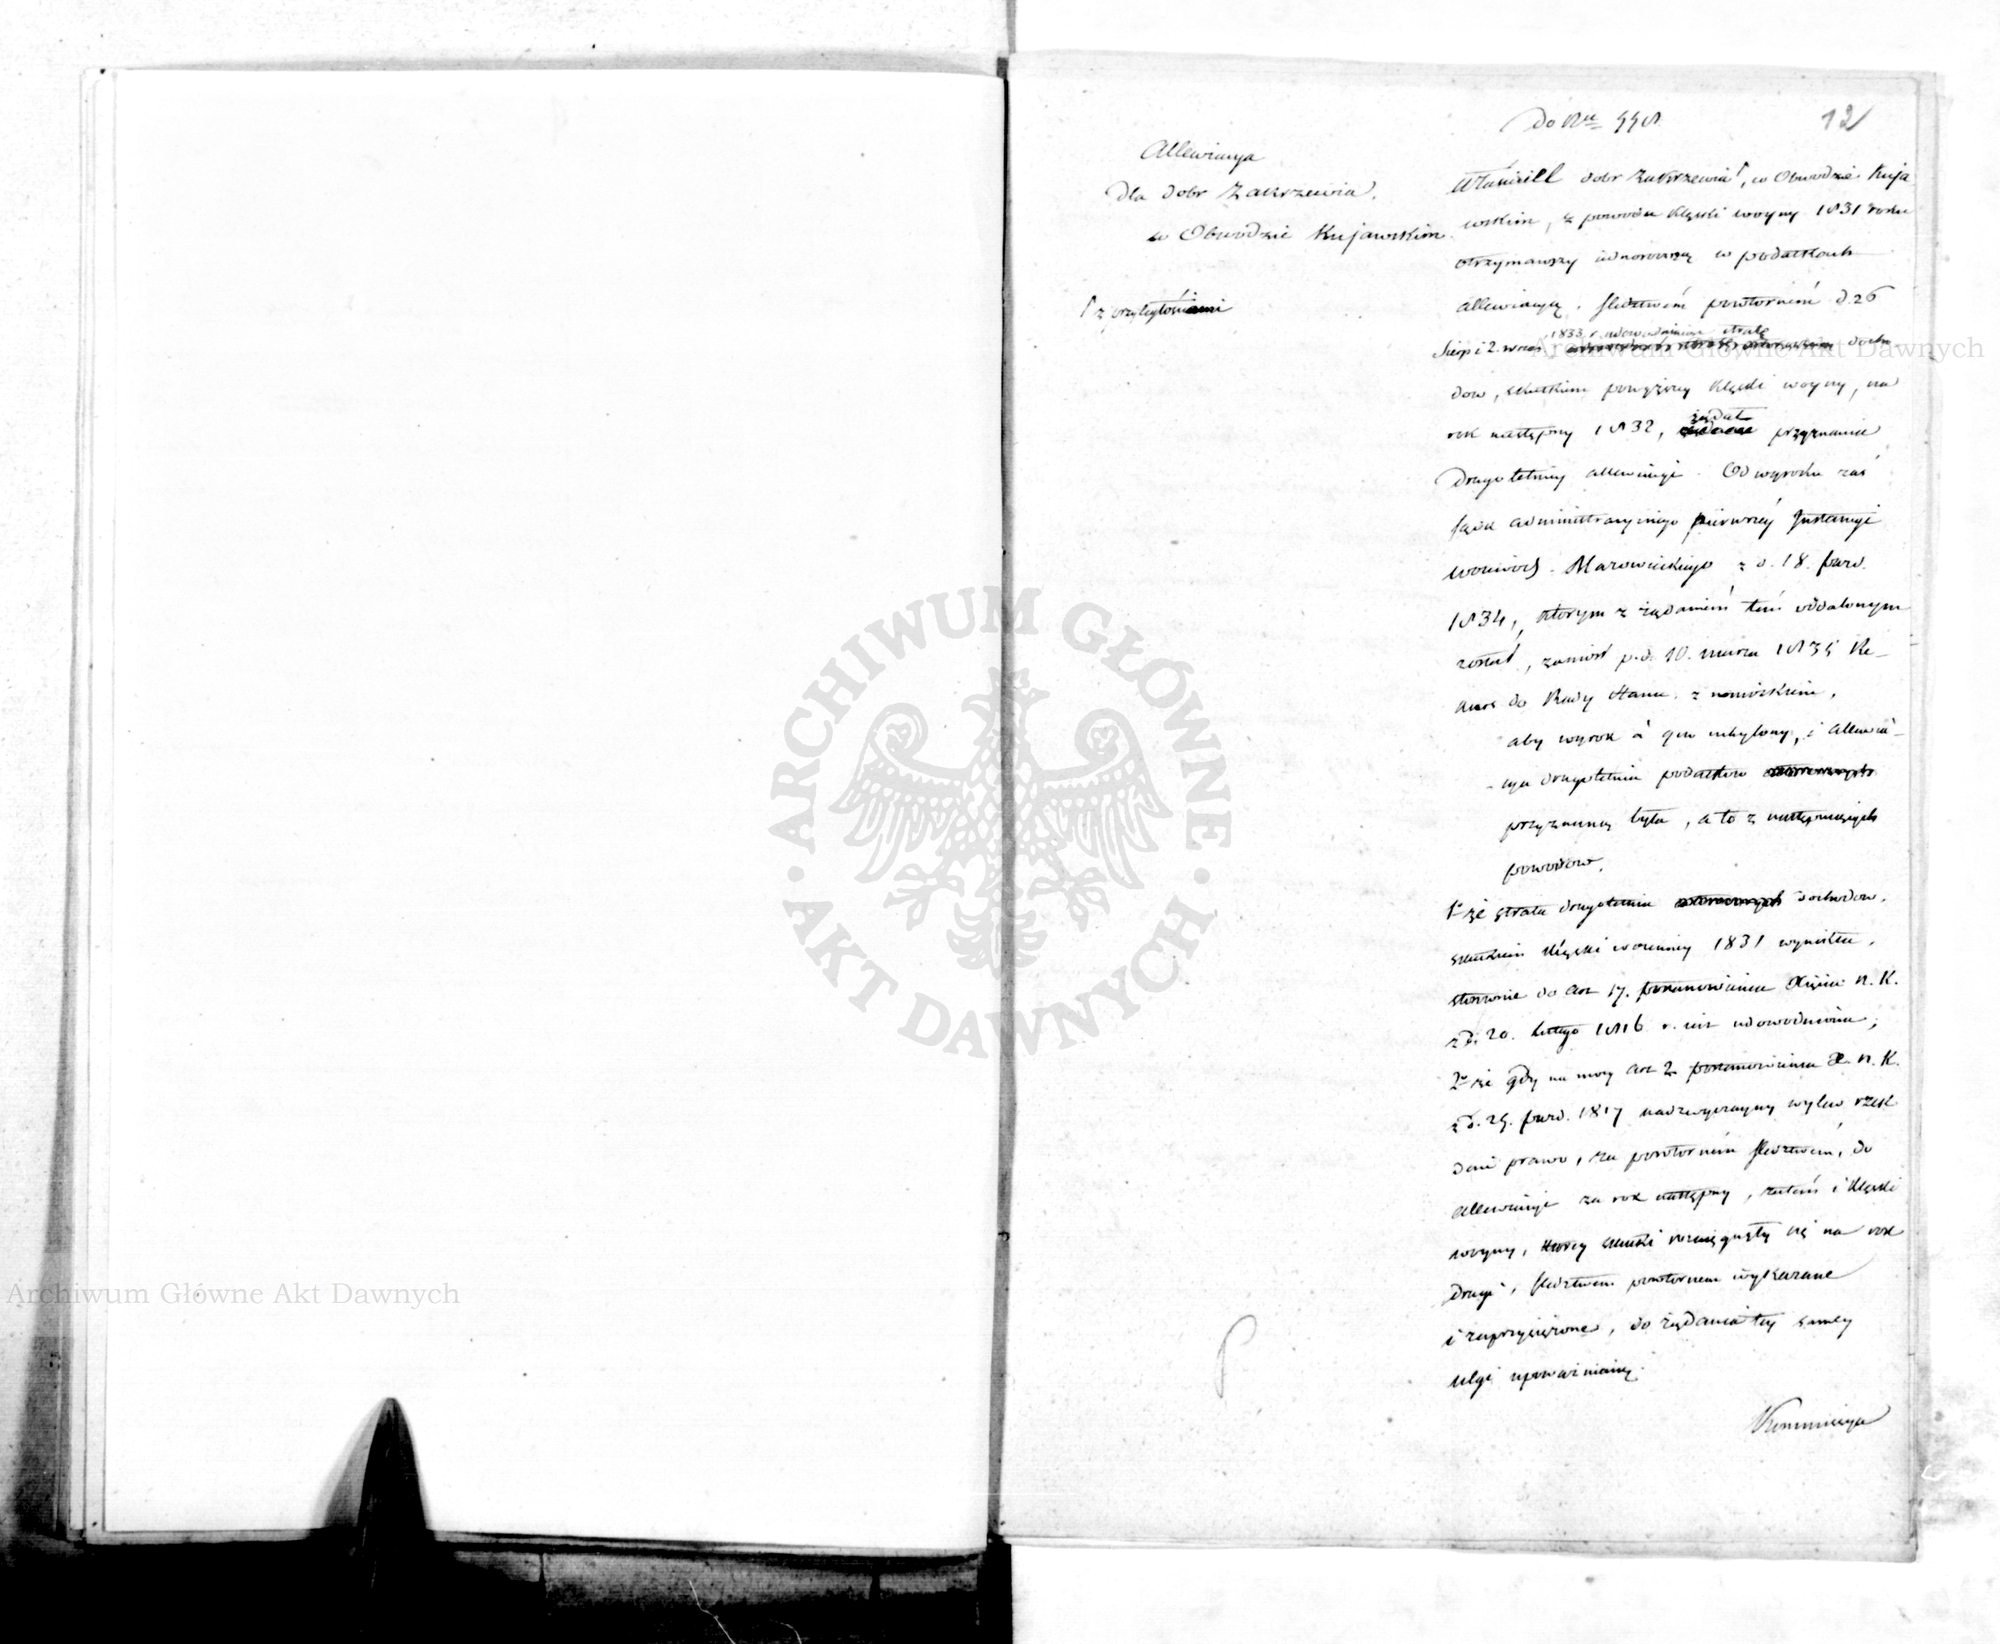 12
Allewiacya
dla dobr Zakrzewia
w Obwodzie Kujawskim
z przyległościami
Do Nru
Właściciel dobr Zakrzewia, w Obwodzie Kuja
wskim, z powodu klęski woyny 1831 roku
otrzymawszy w podatkach
allewiacyą, śledztwem powtornem d. 26
1833 r. udowodniwszy stratę
Sierp i 2. wrześ docho
dow, skutkiem powyższey klęski woyny, na
żądał
rok następny 1832, przyznania
drugoletniey allewiacyi. Od wyroku zaś
Sądu administracyinego pierwszey Instancyi
Woiewod. Mazowieckiego z d. 18. paźd.
1834, ktorym z żądaniem tem oddalonym
został, zaniosł p. d. 10. marca 1835 Re-
kurs do Rady Stanu z wnioskiem,
aby wyrok a quo uchylony, i allewia-
-cya drugoletnia podatkow
przyznaną była, a to z następuiących
powodow.
1º że strata drugoletnia dochodow,
skutkiem klęski woienney 1831 wynikła,
stosownie do art 17. postanowienia Xięcia N. K.
z d. 20. lutego 1816 r. iest udowodniona;
2º że gdy na mocy art 2 postanowienia X. N. K.
z d. 25. paźd. 1817 nadzwyczayny wylew rzek
daie prawo, za powtornem śledztwem, do
allewiacyi za rok następny, zatem i klęski
woyny, ktorey skutki rozciągnęły się na rok
drugi, śledztwem powtornem wykazane
i zaprzysiężone, do żądania tey samey
ulgi upoważniaią.
Kommissya
Archiwum Główne Akt Dawnych
Archiwum Główne Akt Dawnych
ARCHIWUM GŁÓWNE
AKT DAWNYCH